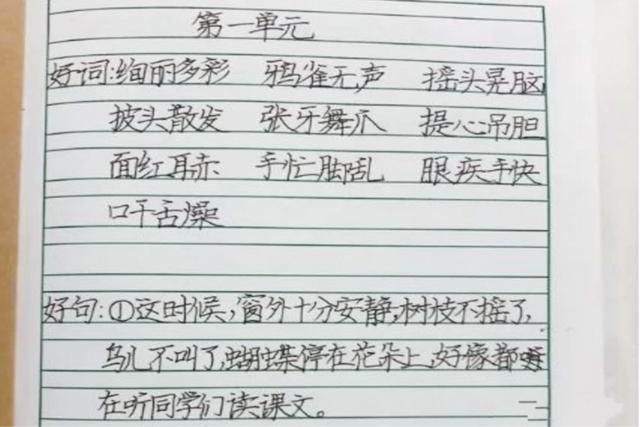 第一单元
好词:绚丽多彩 鸦雀无声 摇头晃脑
披头散发 张牙舞爪 提心吊胆
面红耳赤 手忙脚乱 眼疾手快
口干舌燥
好句:①这时候,窗外十分安静,树枝不摇了,
鸟儿不叫了,蝴蝶停在花朵上,好像都
在听同学们读课文。